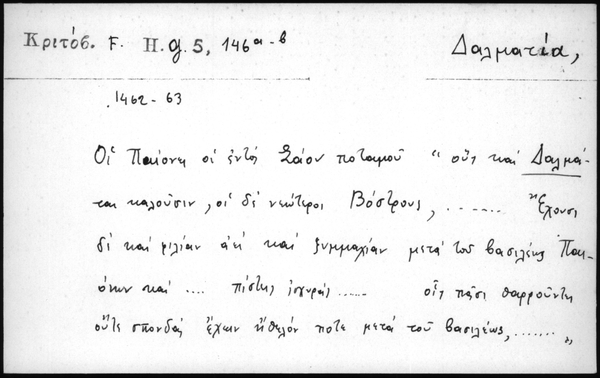 Κριτόβ. F. H. g. 5, 146 α-β Δαλματία,
1462 - 63
Οἱ Παίονες οἱ ἐντός Σάου ποταμοῦ " οὕς καί Δαλμά-
ται καλοῦσιν, οἱ δέ νεώτεροι Βόστρους, ....... Ἔχουσι
δέ καί φιλίαν ἀεί καί ξυμμαχίαν μετά τοῦ βασιλέως Παι-
όνων καί .... πίστεις ἰσχυράς ...... οἷς πᾶσι θαρροῦντες
οὔτε σπονδάς ἔχειν ἤθελόν ποτε μετά τοῦ βασιλέως, ....... "